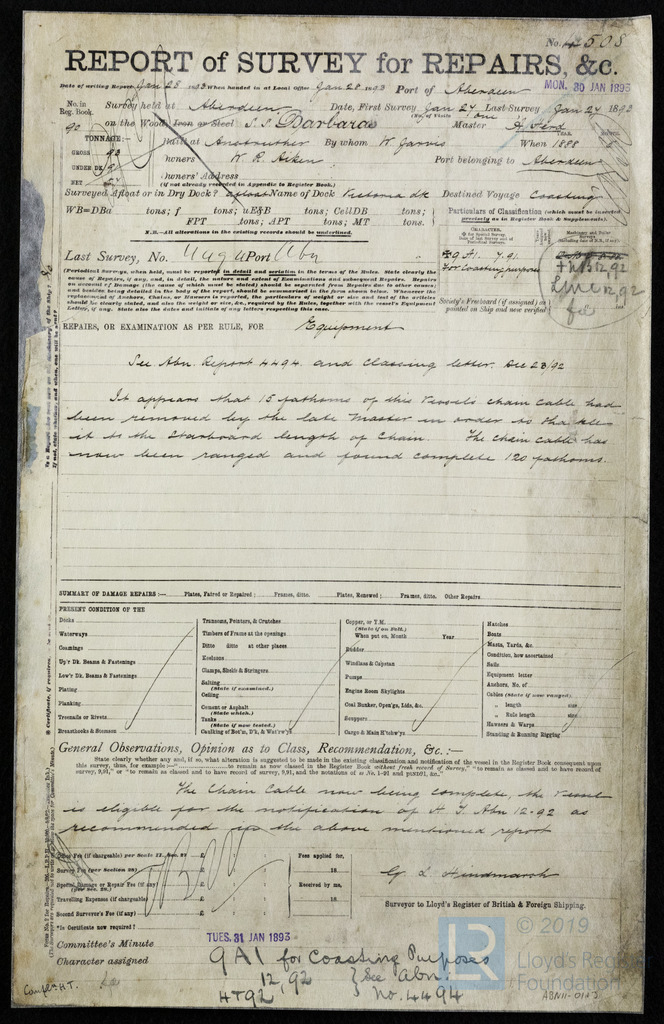 No. 4508
REPORT of SURVEY for REPAIRS, &c.
Date of writing Report Jan 28 1893 When handed in at Local Office Jan 28 1893 Port of Aberdeen
MON. 30 JAN 1893
No. in Reg. Book. Survey held at Aberdeen Date, First Survey Jan 24 Last Survey Jan 24 1893
(No. of Visits One
90 on the Wood, Iron or Steel S.S. Barbara Master
TONNAGE:— Built at Anstruther By whom W. Jarvis When 1888
GROSS 93 Owners W. R. Aiken Port belonging to Aberdeen
UNDER DK
NET Owners' Address
(if not already recorded in Appendix to Register Book.)
Surveyed Afloat or in Dry Dock? afloat Name of Dock Victoria dk Destined Voyage Coasting
WB=DBa tons; f tons; uE&B tons; CellDB tons;
FPT tons; APT tons; MT tons.
N.B.—All alterations in the existing records should be underlined.
Particulars of Classification (which must be inserted precisely as in Register Book & Supplements).
Last Survey, No. 4494 Port Abn
9 A1. 7,91
For Coasting purposes
(Periodical Surveys, when held, must be reported in detail and seriatim in the terms of the Rules. State clearly the cause of Repairs, if any, and, in detail, the nature and extent of Examinations and subsequent Repairs. Repairs on account of Damage (the cause of which must be stated) should be separated from Repairs due to other causes; and besides being detailed in the body of the report, should be summarised in the form shown below. Whenever the replacement of Anchors, Chains, or Hawsers is reported, the particulars of weight or size and test of the articles should be clearly stated, and also the weight or size, &c., required by the Rules, together with the vessel's Equipment Letter, if any. State also the dates and initials of any letters respecting this case.
Society's Freeboard (if assigned) as painted on Ship and now verified
REPAIRS, OR EXAMINATION AS PER RULE, FOR Equipment
See Abn. Report 4494. and Classing letter. Dec 23/92
It appears that 15 fathoms of this Vessels chain Cable had
been removed by the late Master in order to shackle
it to the Starboard length of Chain. The Chain Cable has
now been ranged and found complete 120 fathoms.
SUMMARY OF DAMAGE REPAIRS:— Plates, Faired or Repaired; Frames, ditto. Plates, Renewed; Frames, ditto. Other Repairs
PRESENT CONDITION OF THE
Decks
Waterways
Coamings
Up'r Dk. Beams & Fastenings
Low'r Dk. Beams & Fastenings
Plating
Planking
Treenails or Rivets
Breasthooks & Stemson
Transoms, Pointers, & Crutches
Timbers of Frame at the openings
Ditto ditto at other places
Keelsons
Clamps, Shelfs & Stringers
Salting
(State if examined.)
Ceiling
Cement or Asphalt
(State which.)
Tanks
(State if now tested.)
Caulking of Bot'm, D'k, & Wat'w'ys
Copper, or Y.M.
(State if on Felt.)
When put on, Month Year
Rudder
Windlass & Capstan
Pumps
Engine Room Skylights
Coal Bunker, Open'gs, Lids, &c.
Scuppers
Cargo & Main H'tchw'ys
Hatches
Boats
Masts, Yards, &c.
Condition, how ascertained
Sails
Equipment letter
Anchors, No. of
Cables (State if now ranged)
" length size
" Rule length size
Hawsers & Warps
Standing & Running Rigging
General Observations, Opinion as to Class, Recommendation, &c.:—
State clearly whether any, and if, so, what alteration is suggested to be made in the existing classification and notification of the vessel in the Register Book consequent upon this survey, thus, for example:—
The Chain Cable now being complete, the Vessel
is eligible for the notification of H. T. Abn 12.92 as
recommended in the above mentioned report
Office Fee (if chargeable) per Scale II., Sec. 27 £
Survey Fee (per Section 28) £
Special Damage or Repair Fee (if any) £
(per Sec. 28.)
Travelling Expenses (if chargeable) £
Second Surveyor's Fee (if any) £
Fees applied for, 18
Received by me, 18
G L Hindmarsh
Surveyor to Lloyd's Register of British & Foreign Shipping.
*Is Certificate now required?
Committee's Minute TUES. 31 JAN 1893
Character assigned 9A1 for Coasting Purposes
12,92 } See Abn.
HT92 No. 4494
© 2019
LR
Lloyd's Register
Foundation
ABN11-0103